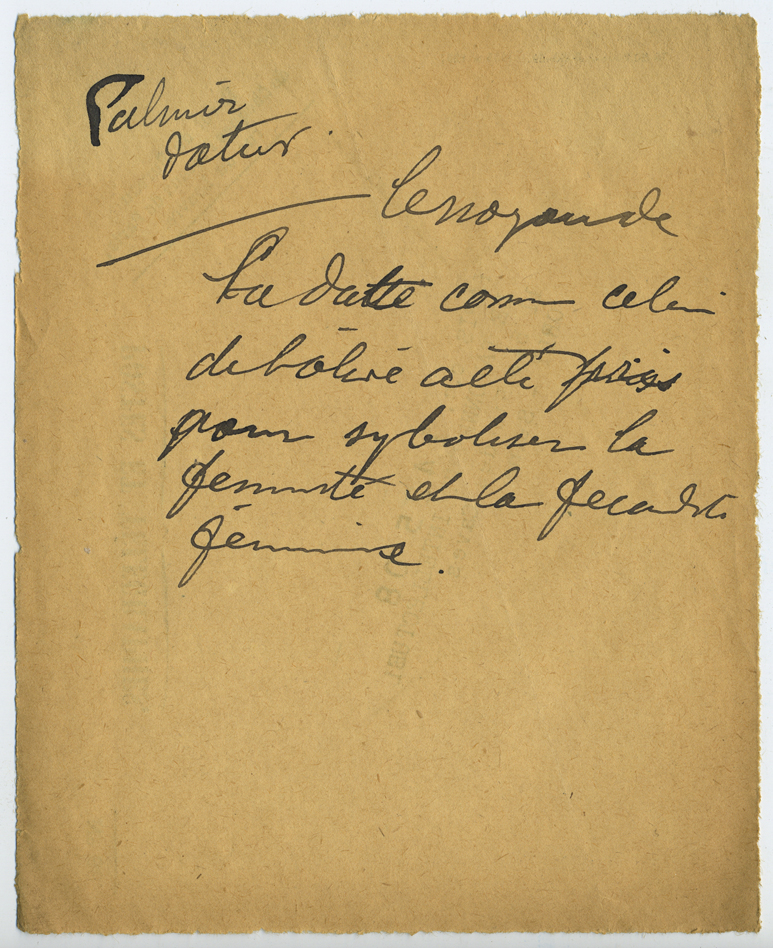 Palmier
datier.
le noyau de
la datte comme celui
de l'olive a été pris
pour syboliser la
feminité et la fecondité
féminine.